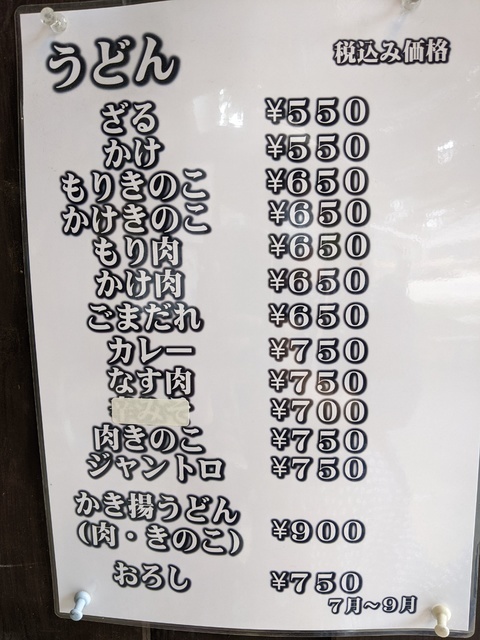 うどん
税込み価格
ざる ¥550
かけ ¥550
もりきのこ ¥650
かけきのこ ¥650
もり肉 ¥650
かけ肉 ¥650
ごまだれ ¥650
カレー ¥750
なす肉 ¥750
¥700
肉きのこ ¥750
ジャントロ ¥750
かき揚うどん
(肉・きのこ) ¥900
おろし ¥750
7月～9月